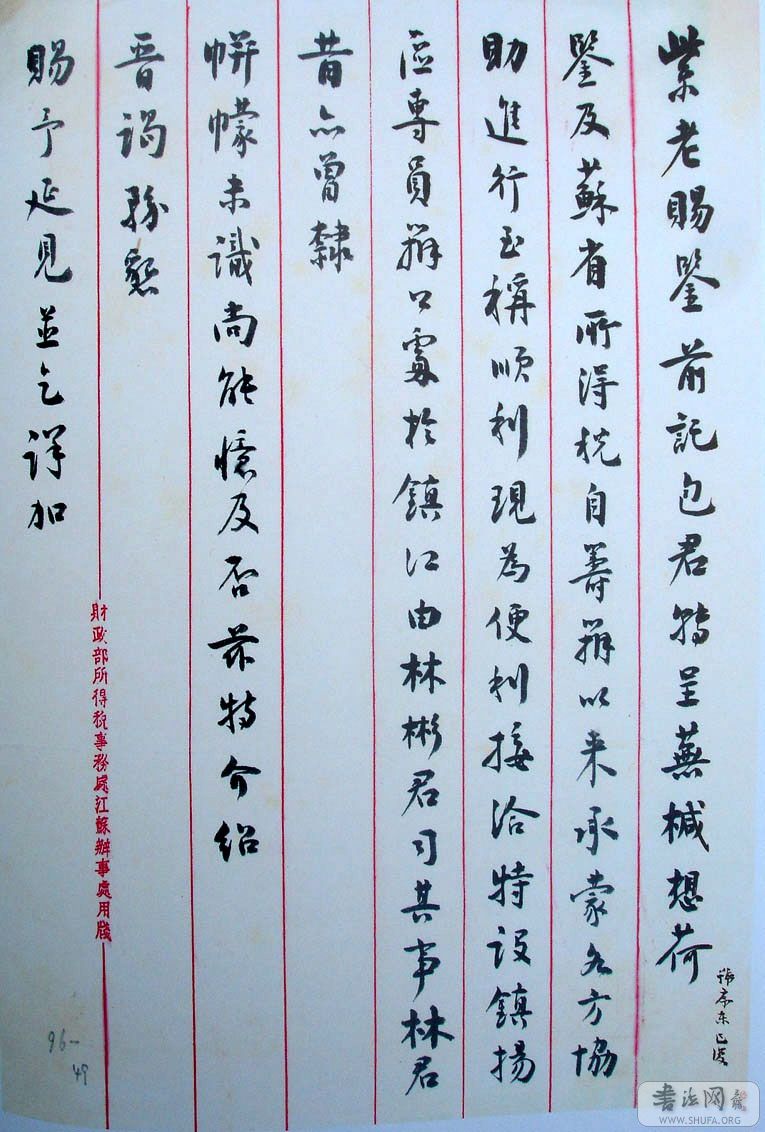 紫老賜鑒前託包君轉呈蕪椷想荷
鑒及蘇省所得稅自籌辦以来承蒙各方協
助進行至稱順利現為便利接洽特設鎮揚
區專員辦公處於鎮江由林彬君司其事林君
昔亦曾隸
帡幪未識尚能憶及否茲特介紹
晋謁務懇
賜予延見並乞詳加
財政部所得稅事務處江蘇辦事處用牋
96-
49
書法网
WWW.SHUFA.ORG